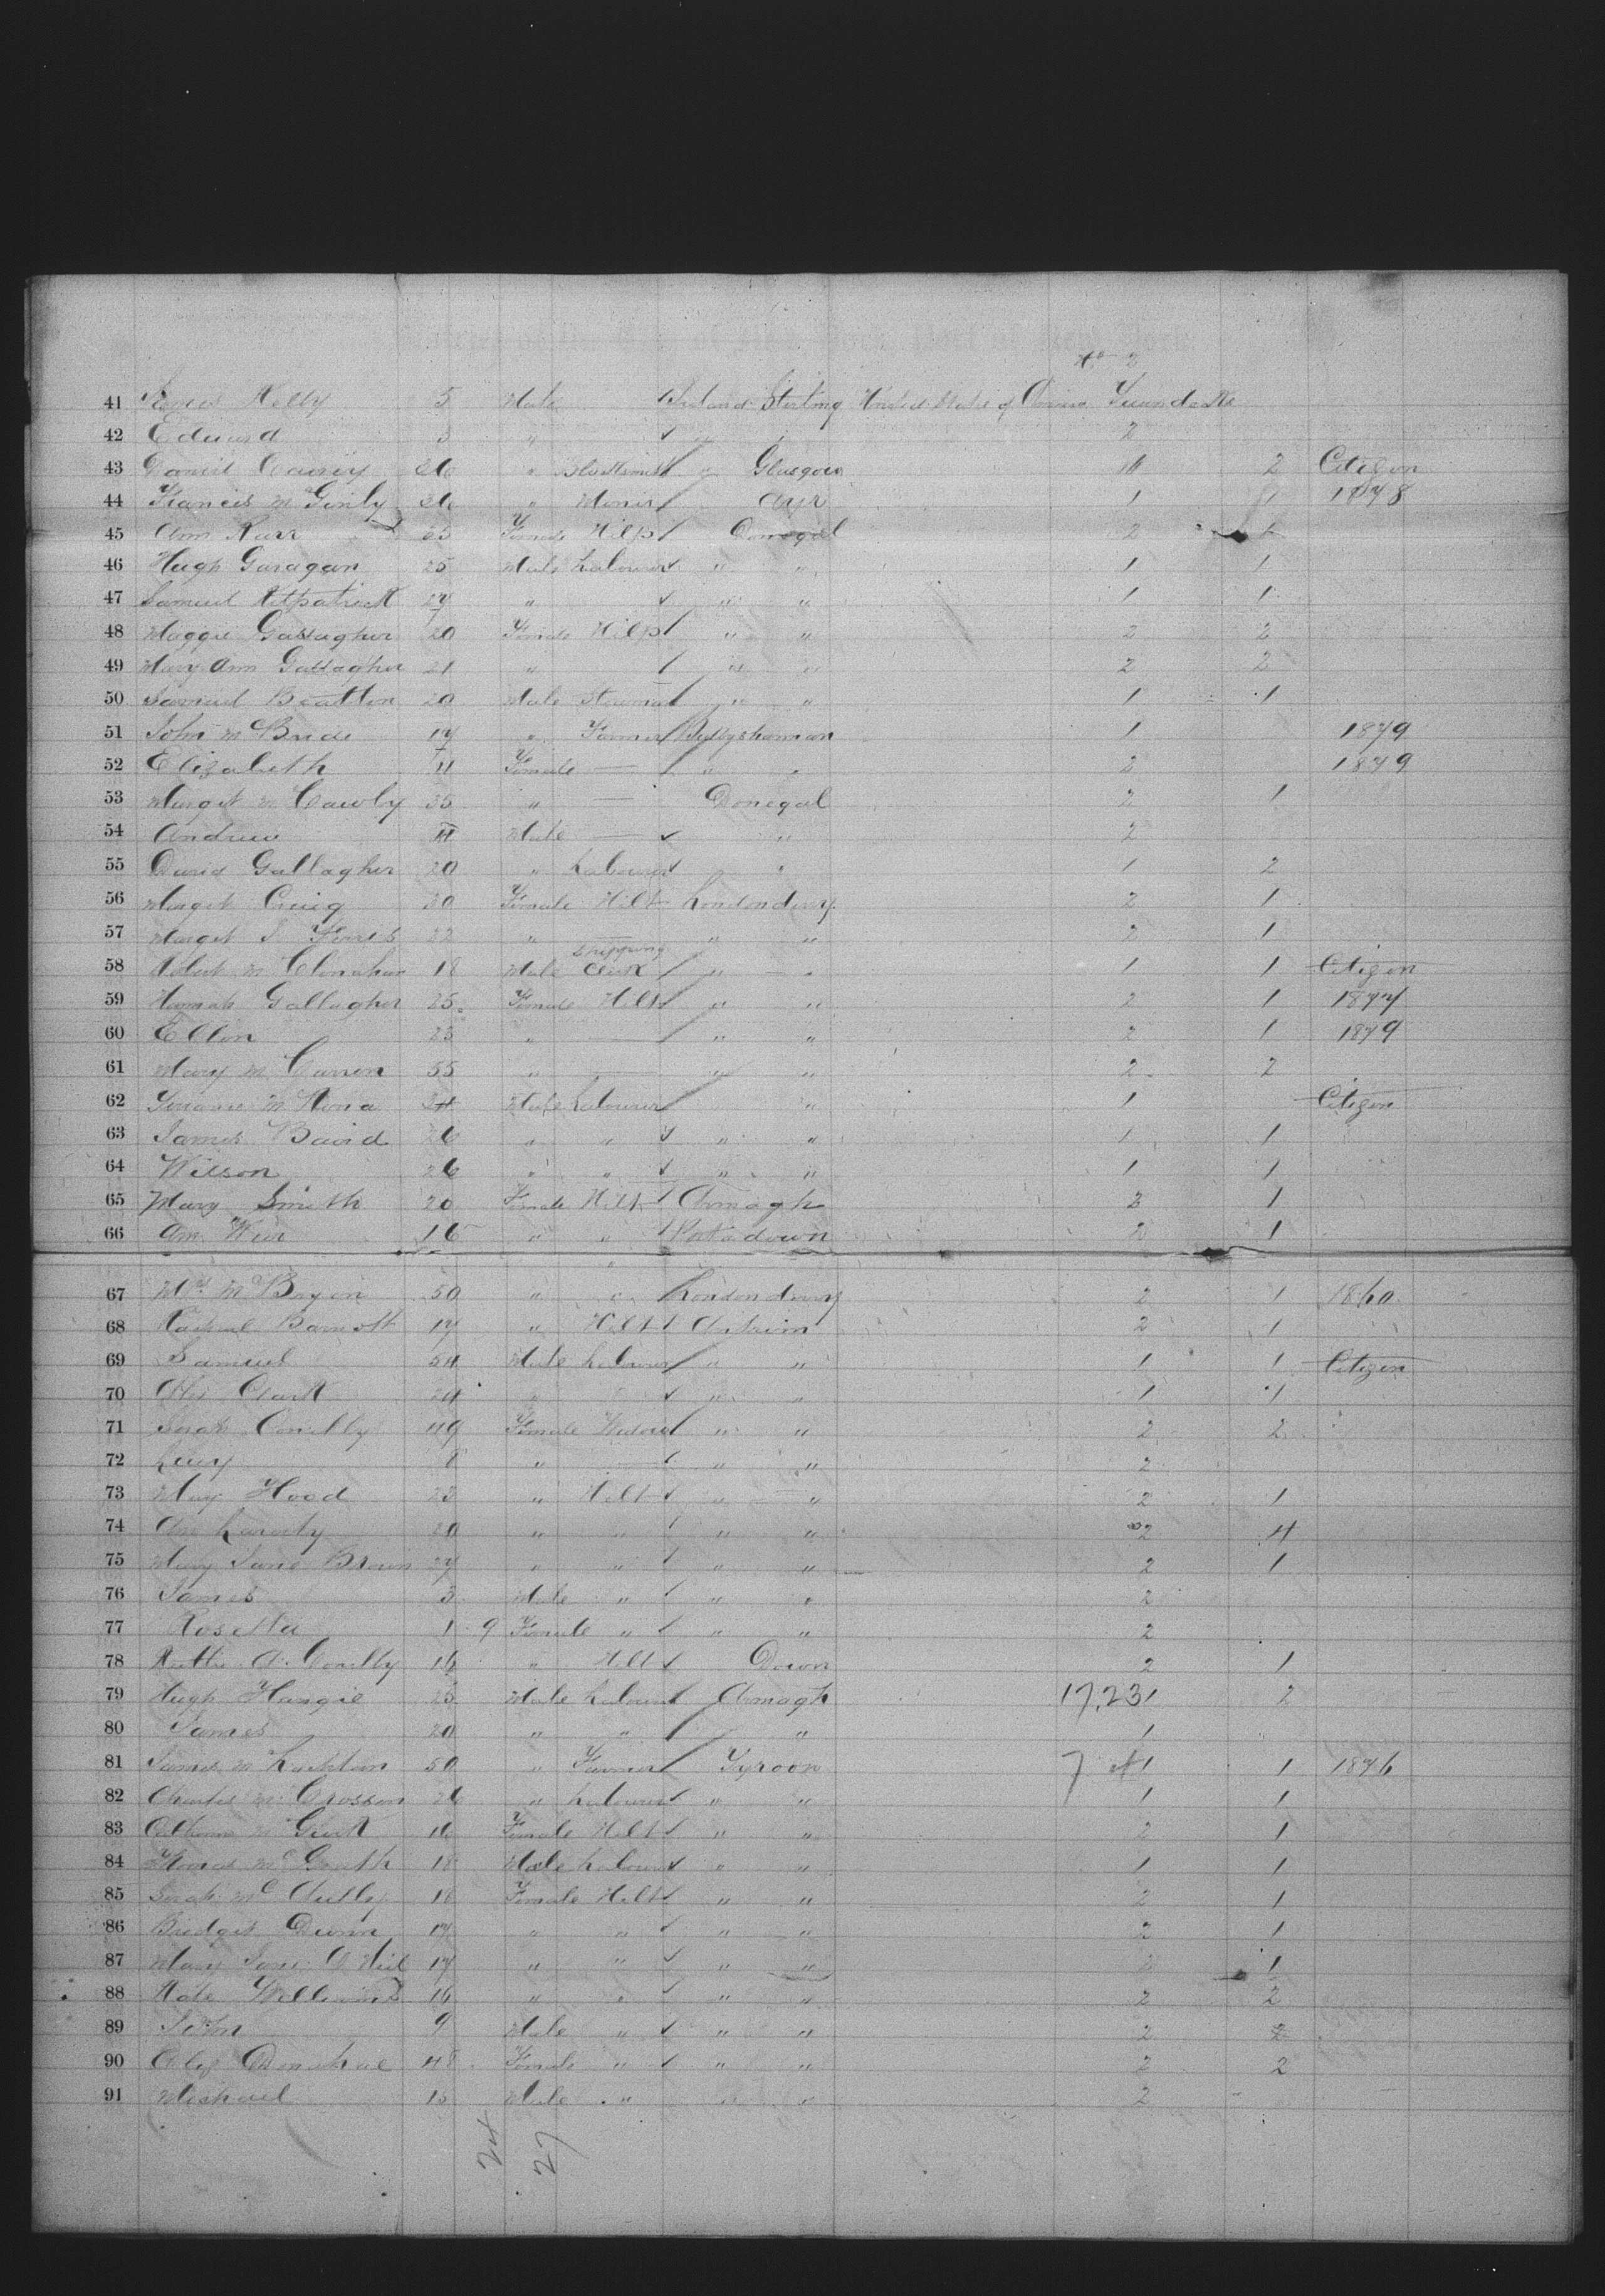 No 2
41 Kelly 5 Male Ireland Stirling United States of
42 Edward 3 " " 2
43 Daniel 26 " Blacksmith " Glasgow 2 Citizen
44 Francis Mc Ginly 26 " Miner Ayr 1 1 1878
45 Ann Kerr 25 Female Help Donegal 2
46 Hugh Garagan 25 Male Labourer " " 1 1
47 Samuel Kilpatrick 27 " " " 1 1
48 Maggie Gallagher 20 Female Help " " 2 2
49 Mary Ann Gallagher 21 " " " 2 2
50 Samuel Beatton 20 Male " " 1 1
51 John Mc Bride 17 " Farmer Ballyshannon 1 1879
52 Elizabeth 11 Female — " " 2 1879
53 Margret Mc Cawly 35 " — Donegal 2 1
54 Andrew 11 Male — " 2
55 David Gallagher 20 " Labourer " 1 2
56 Margret Craig 30 Female Help Londonderry 2 1
57 Margret J 22 " — " " 2 1
58 Robert Mc Clenahan 18 Male Shipping Clerk " " 1 1 Citizen
59 Hannah Gallagher 25 Female Help " " 2 1 1877
60 Ellen 23 " — " " 2 1 1879
61 Mary Mc Carron 55 " — " " 2 2
62 Mc Kenna 24 Male Labourer " 1 Citizen
63 James Baird 26 " " " " 1 1
64 Wilson 26 " " " " 1 1
65 Mary Smith 20 Female Help Armagh 2 1
66 Ann Weir 16 " " Portadown 2 1
67 Mrs Mc 50 " " Londonderry 2 1 1860
68 Rachael Barnott 17 " Help Antrim 2 1
69 Samuel 54 Male Labourer " " 1 1 Citizen
70 Clark 24 " " " " 1 1
71 Sarah Conolly 49 Female Widow " " 2 2
72 Lucy 8 " — " " 2
73 May Hood 23 " Help " " 2 1
74 Laverty 20 " " " " 2 4
75 Mary Jane Brown 27 " " " " 2 1
76 James 3 Male " " " 2
77 Rosetta 1 9 Female " " " 2
78 A. Conolly 16 " Help Down 2 1
79 Hugh 25 Male Labourer Armagh 17,23 1 2
80 James 20 " " " 1
81 James Mc 50 " Farmer Tyroon 7 1 1 1876
82 Charles Mc Crossan 26 " Labourer " " 1 1
83 Catherine Mc Gurk 16 Female Help " " 2 1
84 Thomas Mc Grath 18 Male Labourer " " 1 1
85 Sarah Mc 18 Female Help " " 2 1
86 Bridget Dunn 17 " " " " 2 1
87 Mary Jane O Neil 17 " " " " 2 1
88 Kate 16 " " " " 2 2
89 John 9 Male " " " 2 2
90 Donahue 48 Female " " " 2 2
91 Michael Male " " " 2
24 27